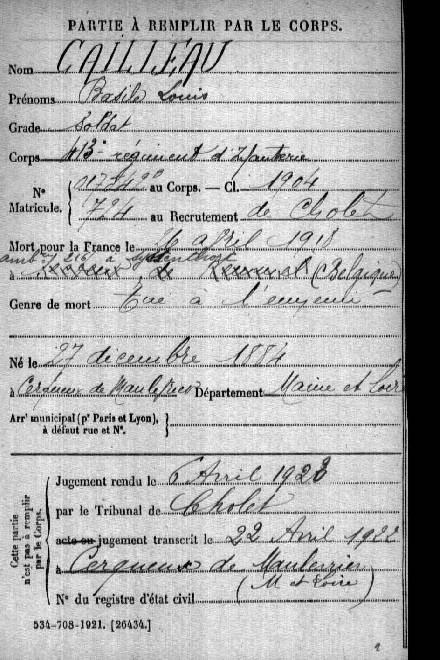 PARTIE À REMPLIR PAR LE CORPS.
Nom CAILLEAU
Prénoms Basile Louis
Grade Soldat
Corps 413e régiment d'Infanterie
N° Matricule. au Corps. — Cl. 1904
724 au Recrutement de Cholet
Mort pour la France le avril 1918
amb 216 à
à de Kemmel (Belgique)
Genre de mort Tué à l'ennemi
Né le 27 décembre 1884
à Cerqueux de Maulevrier Département Maine et Loire
Arrt municipal (pr Paris et Lyon),
à défaut rue et N°.
Cette partie n'est pas à remplir par le Corps.
Jugement rendu le 6 Avril 1922
par le Tribunal de Cholet
acte ou jugement transcrit le 22 Avril 1922
à Cerqueux de Maulevrier
(M et Loire)
N° du registre d'état civil
534-708-1921. [26434.]